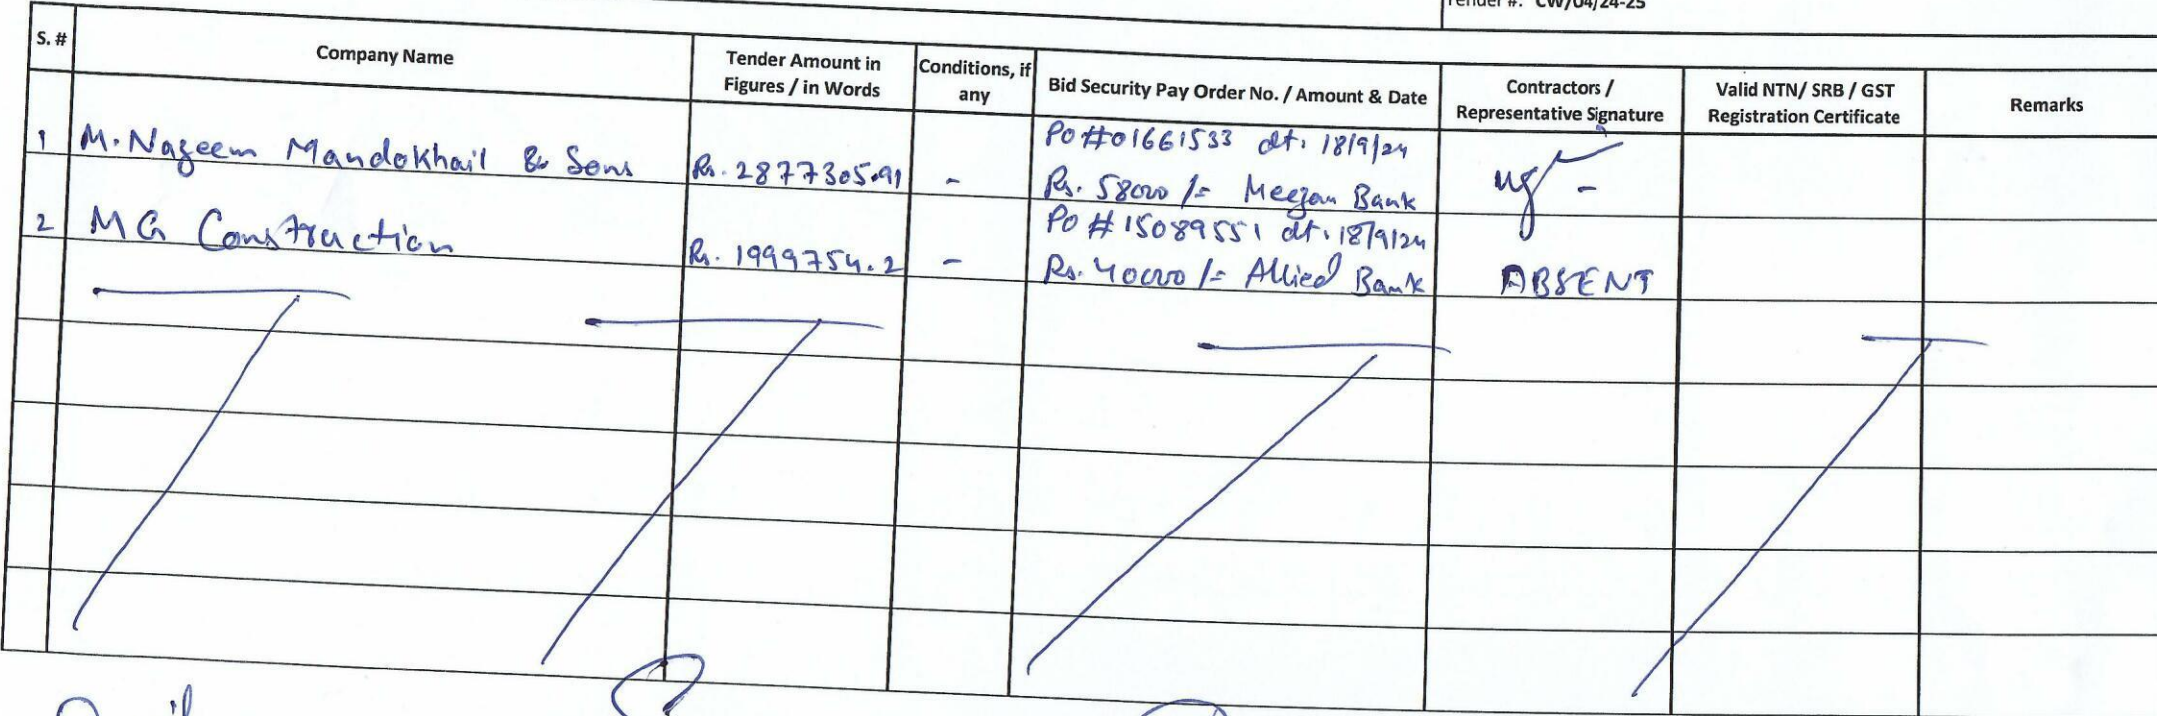 Tender #: CW/04/24-25
S. #
Company Name
Tender Amount in
Figures / in Words
Conditions, if
any
Bid Security Pay Order No. / Amount & Date
Contractors /
Representative Signature
Valid NTN/ SRB / GST
Registration Certificate
Remarks
1 M. Nazeem Mandokhail & Sons Rs. 2877305.91 - PO #01661533 dt. 18/9/24
Rs. 58000/= Meezan Bank
2 MG Construction Rs. 1999754.2 - PO # 15089551 dt. 18/9/24
Rs. 40000/= Allied Bank ABSENT